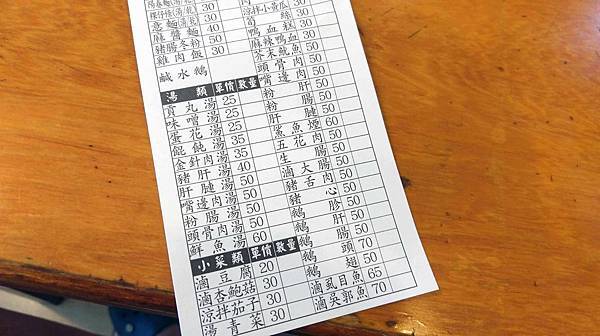 意麵(湯/乾) 30
麻醬麵 40
豬腸冬粉 50
雞肉飯 30
鹹水鵝
湯類 單價 數量
貢丸湯 25
味噌湯 25
蛋花湯 25
餛飩湯 35
金針肉湯 35
豬肝湯 40
肝腱湯 50
嘴邊肉湯 50
粉腸湯 50
頭骨肉湯 50
鮮魚湯 60
小菜類 單價 數量
滷豆腐 20
滷杏鮑菇 30
涼拌茄子 30
湯青菜 30
涼拌小黃瓜 30
筍絲 30
鴨血糕 30
麻辣鴨血 30
芥末魷魚 50
頭骨肉 50
嘴邊肉 50
粉肝 50
粉腸 50
肝腱 50
鯊魚煙 60
五花肉 50
生腸 50
滷大腸 50
豬舌肉 50
豬心 50
鵝胗 50
鵝肝 50
鵝腸 50
鵝頭 70
鵝翅 50
滷虱目魚 65
滷吳郭魚 70